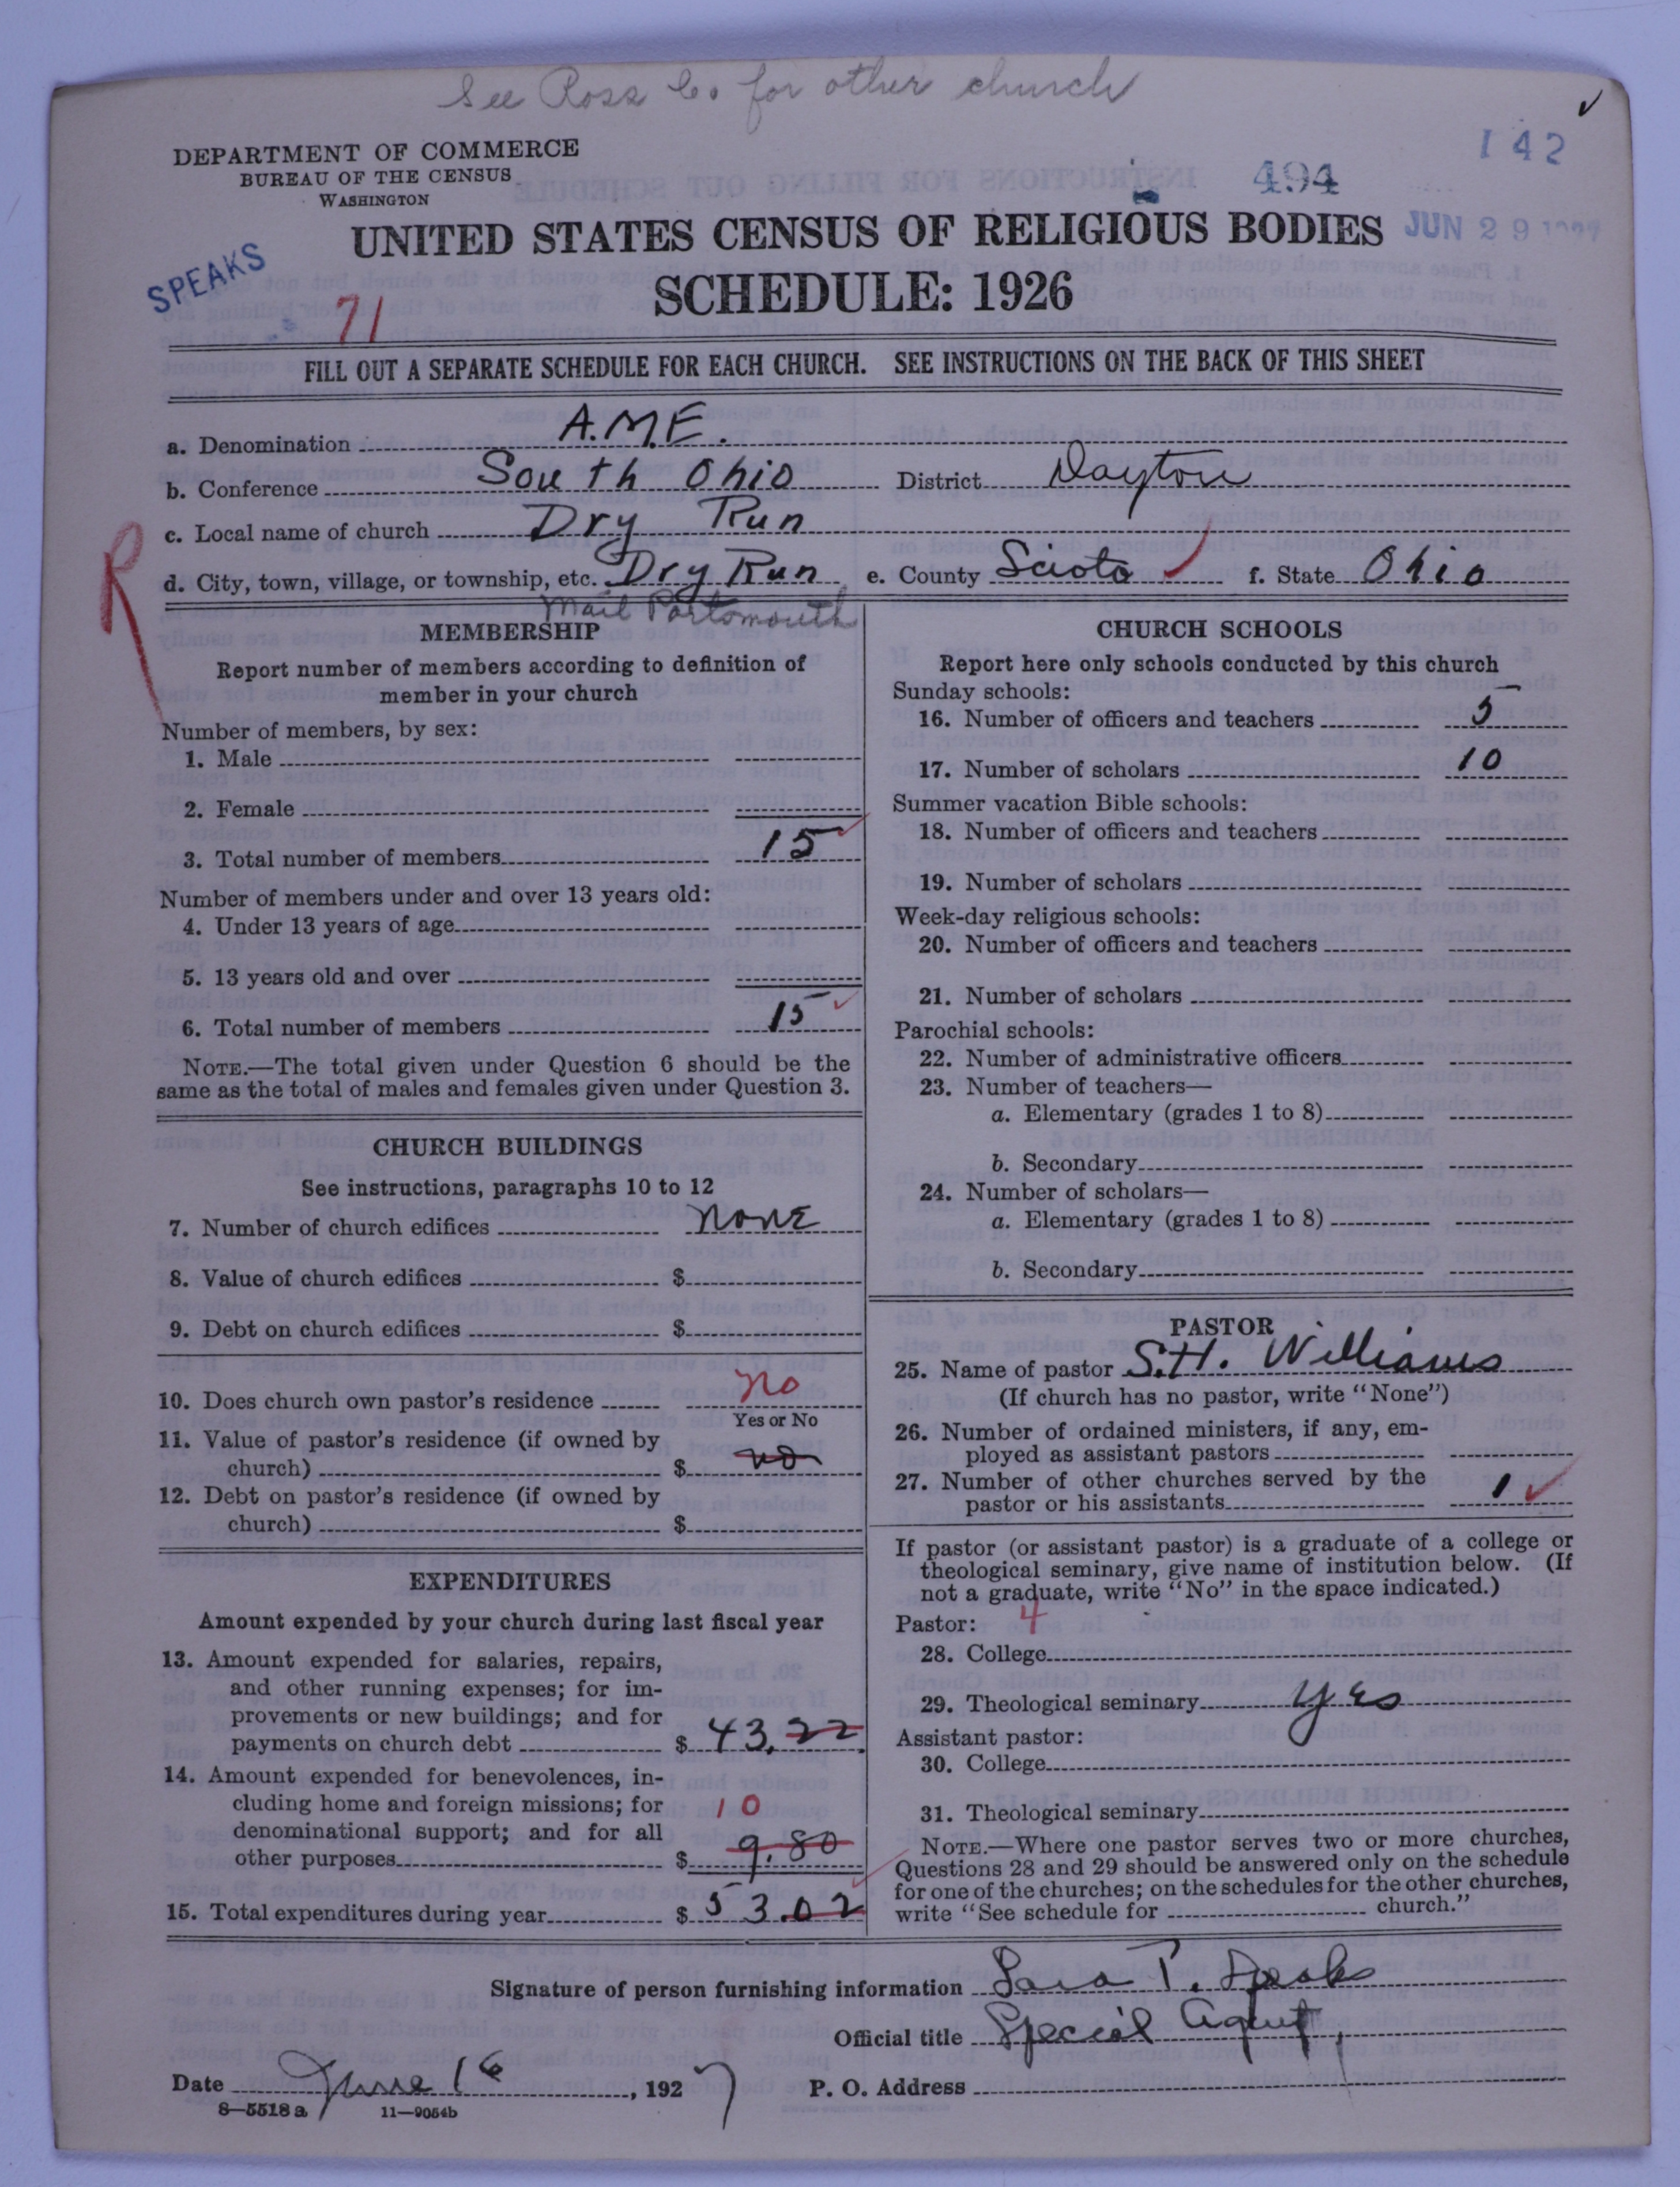 See Ross Co. for other church
✓
DEPARTMENT OF COMMERCE
BUREAU OF THE CENSUS
WASHINGTON
494
142
UNITED STATES CENSUS OF RELIGIOUS BODIES
JUN 29 1927
SPEAKS
71
SCHEDULE: 1926
FILL OUT A SEPARATE SCHEDULE FOR EACH CHURCH. SEE INSTRUCTIONS ON THE BACK OF THIS SHEET
a. Denomination A.M.E.
b. Conference South Ohio District Dayton
c. Local name of church Dry Run
R
d. City, town, village, or township, etc. Dry Run e. County Scioto f. State Ohio
Mail Portsmouth
MEMBERSHIP
Report number of members according to definition of
member in your church
Number of members, by sex:
1. Male
2. Female
3. Total number of members 15
Number of members under and over 13 years old:
4. Under 13 years of age
5. 13 years old and over
6. Total number of members 15
NOTE.—The total given under Question 6 should be the
same as the total of males and females given under Question 3.
CHURCH BUILDINGS
See instructions, paragraphs 10 to 12
7. Number of church edifices None
8. Value of church edifices $
9. Debt on church edifices $
10. Does church own pastor's residence no
Yes or No
11. Value of pastor's residence (if owned by
church) $ no
12. Debt on pastor's residence (if owned by
church) $
EXPENDITURES
Amount expended by your church during last fiscal year
13. Amount expended for salaries, repairs,
and other running expenses; for im-
provements or new buildings; and for
payments on church debt $ 43.22
14. Amount expended for benevolences, in-
cluding home and foreign missions; for 10
denominational support; and for all
other purposes $ 9.80
15. Total expenditures during year $ 53.02
CHURCH SCHOOLS
Report here only schools conducted by this church
Sunday schools:
16. Number of officers and teachers 5
17. Number of scholars 10
Summer vacation Bible schools:
18. Number of officers and teachers
19. Number of scholars
Week-day religious schools:
20. Number of officers and teachers
21. Number of scholars
Parochial schools:
22. Number of administrative officers
23. Number of teachers—
a. Elementary (grades 1 to 8)
b. Secondary
24. Number of scholars—
a. Elementary (grades 1 to 8)
b. Secondary
PASTOR
25. Name of pastor S.H. Williams
(If church has no pastor, write "None")
26. Number of ordained ministers, if any, em-
ployed as assistant pastors
27. Number of other churches served by the
pastor or his assistants 1
If pastor (or assistant pastor) is a graduate of a college or
theological seminary, give name of institution below. (If
not a graduate, write "No" in the space indicated.)
Pastor: 4
28. College
29. Theological seminary Yes
Assistant pastor:
30. College
31. Theological seminary
NOTE.—Where one pastor serves two or more churches,
Questions 28 and 29 should be answered only on the schedule
for one of the churches; on the schedules for the other churches,
write "See schedule for church."
Signature of person furnishing information T. Speaks
Official title Special Agent,
Date June 16, 1927 P. O. Address
8—5518 a 11—9054b